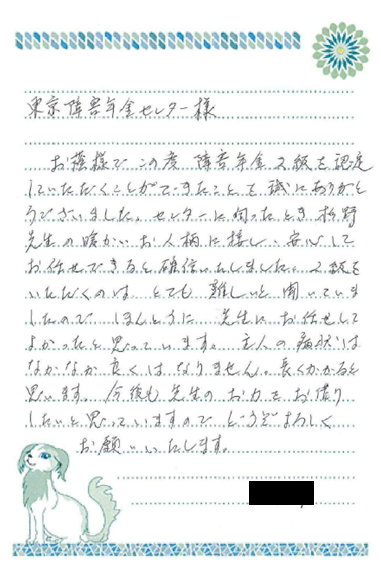 東京障害年金センター様
お蔭様でこの度 障害年金2級を認定
していただくことができたこと を 誠にありがと
うございました。センターに伺ったとき 松野
先生の暖かいお人柄に接し、安心して
お任せできると確信いたしました。2級を
いただくのは とても 難しいと聞いていま
したので ほんとうに 先生にお任せして
よかったと思っています。主人の病状は
なかなか良くはなりません。長くかかると
思います。今後も先生のお力をお借り
したいと思っていますので どうぞよろしく
お願いいたします。